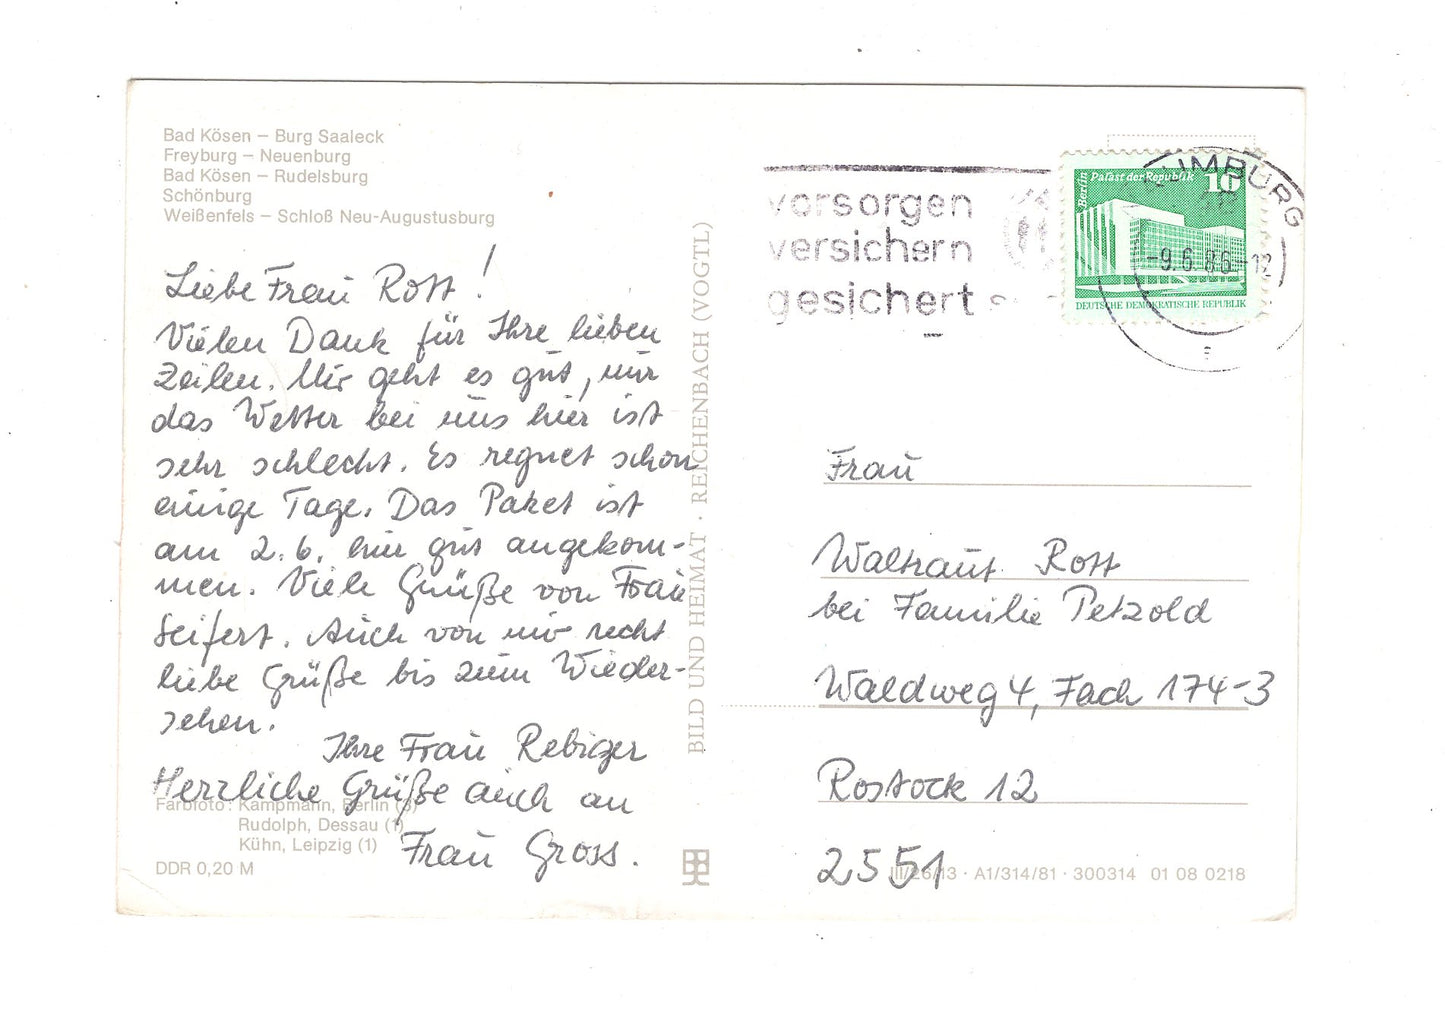 Bad Kösen – Burg Saaleck
Freyburg – Neuenburg
Bad Kösen – Rudelsburg
Schönburg
Weißenfels – Schloß Neu-Augustusburg
Liebe Frau Rott!
Vielen Dank für Ihre lieben
Zeilen. Mir geht es gut, nur
das Wetter bei uns hier ist
sehr schlecht. Es regnet schon
einige Tage. Das Paket ist
am 2.6. hier gut angekom-
men. Viele Grüße von Frau
Seifert. Auch von mir recht
liebe Grüße bis zum Wieder-
sehen.
Ihre Frau Rebiger
Herzliche Grüße auch an
Frau Gross.
Farbfoto: Kampmann, Berlin (3)
Rudolph, Dessau (1)
Kühn, Leipzig (1)
DDR 0,20 M
BILD UND HEIMAT · REICHENBACH (VOGTL)
vorsorgen
versichern
gesichert
Berlin Palast der Republik 10
DEUTSCHE DEMOKRATISCHE REPUBLIK
NAUMBURG
-9.6.86-12
Frau
Waltraut Rott
bei Familie Petzold
Waldweg 4, Fach 174-3
Rostock 12
2551
III/26/13 · A1/314/81 · 300314 01 08 0218